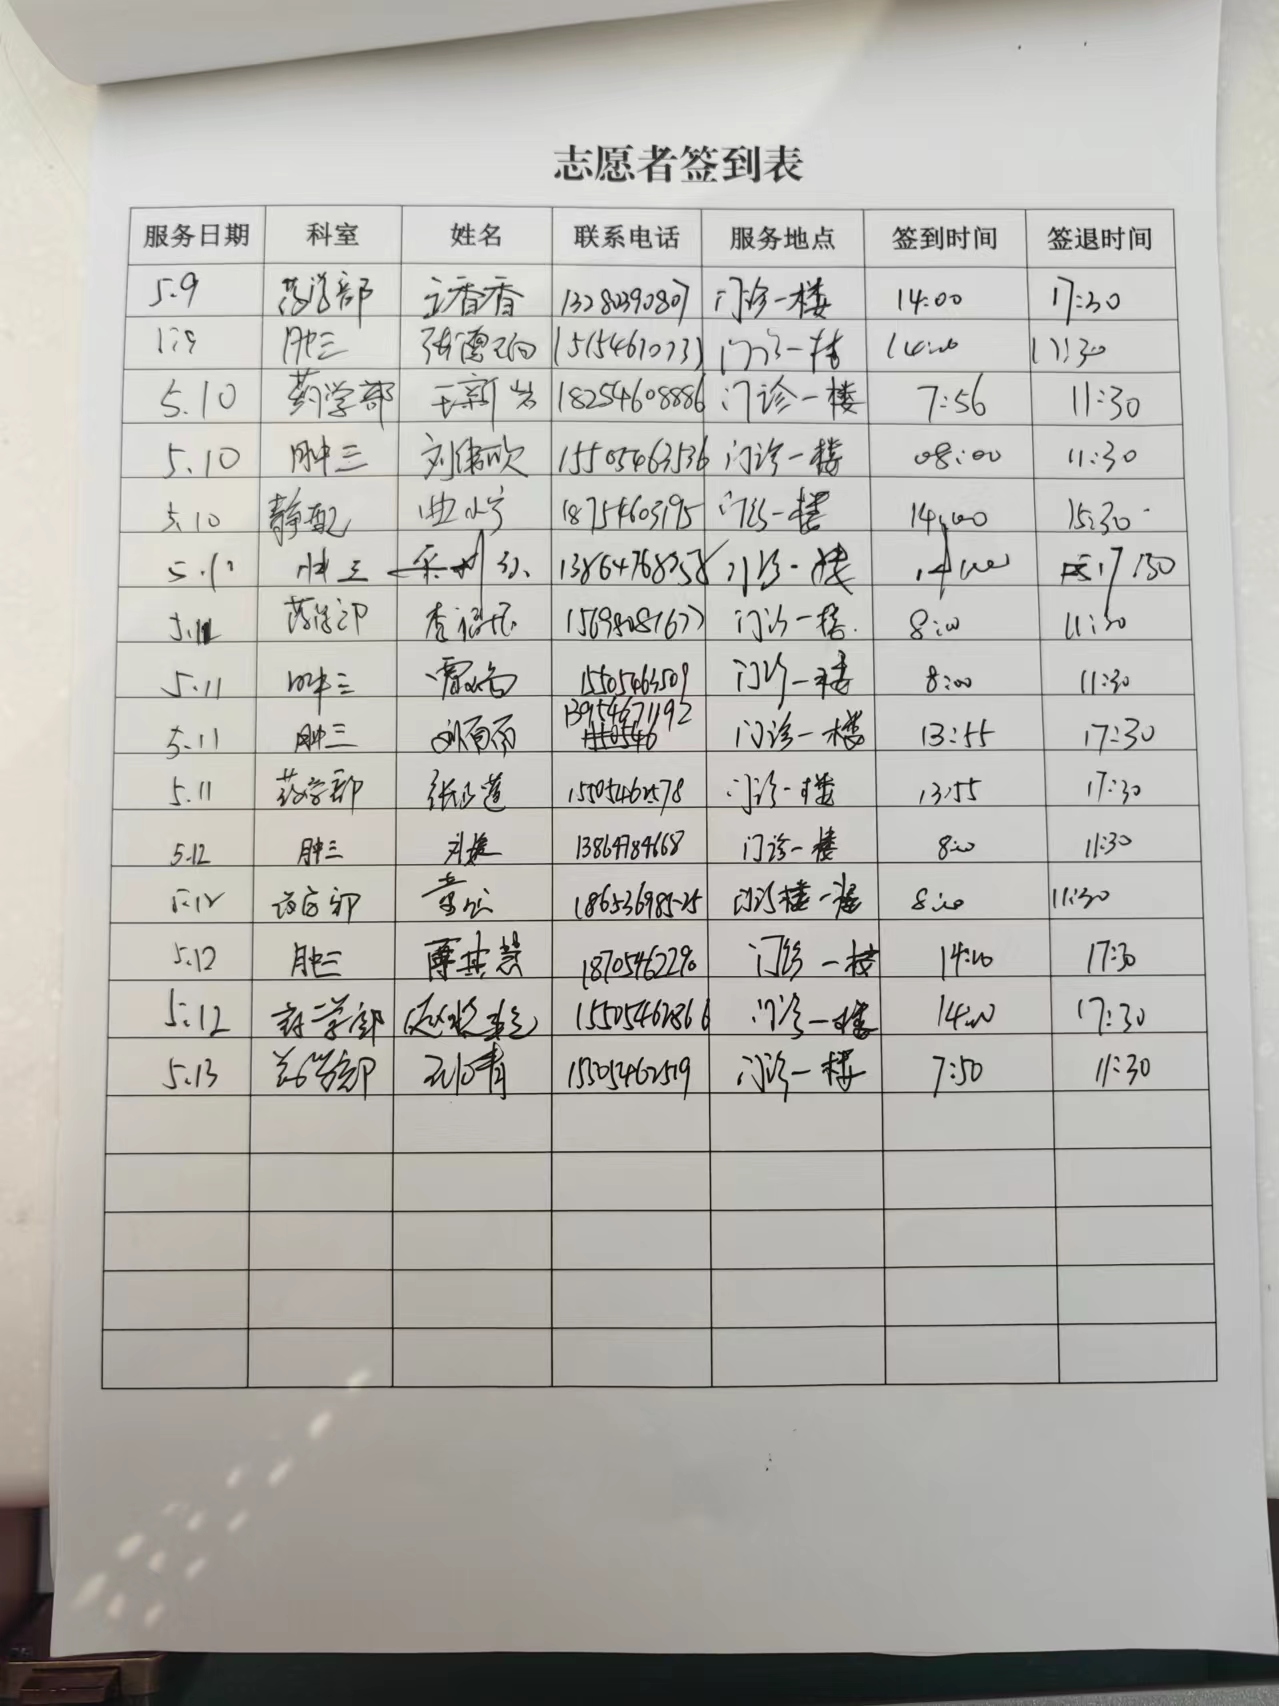 志愿者签到表
服务日期 科室 姓名 联系电话 服务地点 签到时间 签退时间
5.9 药学部 王香香 13280390807 门诊一楼 14:00 17:30
肿三 门诊一楼 14:00 17:30
5.10 药学部 王新岩 18254608886 门诊一楼 7:56 11:30
5.10 肿三 刘伟欧 15505463536 门诊一楼 08:00 11:30
5.10 静配 曲小宁 18754603195 门诊一楼 14:00 15:30
肿三 门诊一楼 17:30
5.11 药学部 门诊一楼 8:00 11:30
5.11 肿三 15505463509 门诊一楼 8:00 11:30
5.11 肿三 刘雨雨 13954671192 门诊一楼 13:55 17:30
5.11 药学部 15505462578 门诊一楼 13:55 17:30
5.12 肿三 13864784668 门诊一楼 8:00 11:30
5.12 药学部 18653698525 门诊楼一楼 8:00 11:30
5.12 肿三 薄其慧 18705462290 门诊一楼 14:00 17:30
5.12 药学部 15505462866 门诊一楼 14:00 17:30
5.13 药学部 15505462519 门诊一楼 7:50 11:30